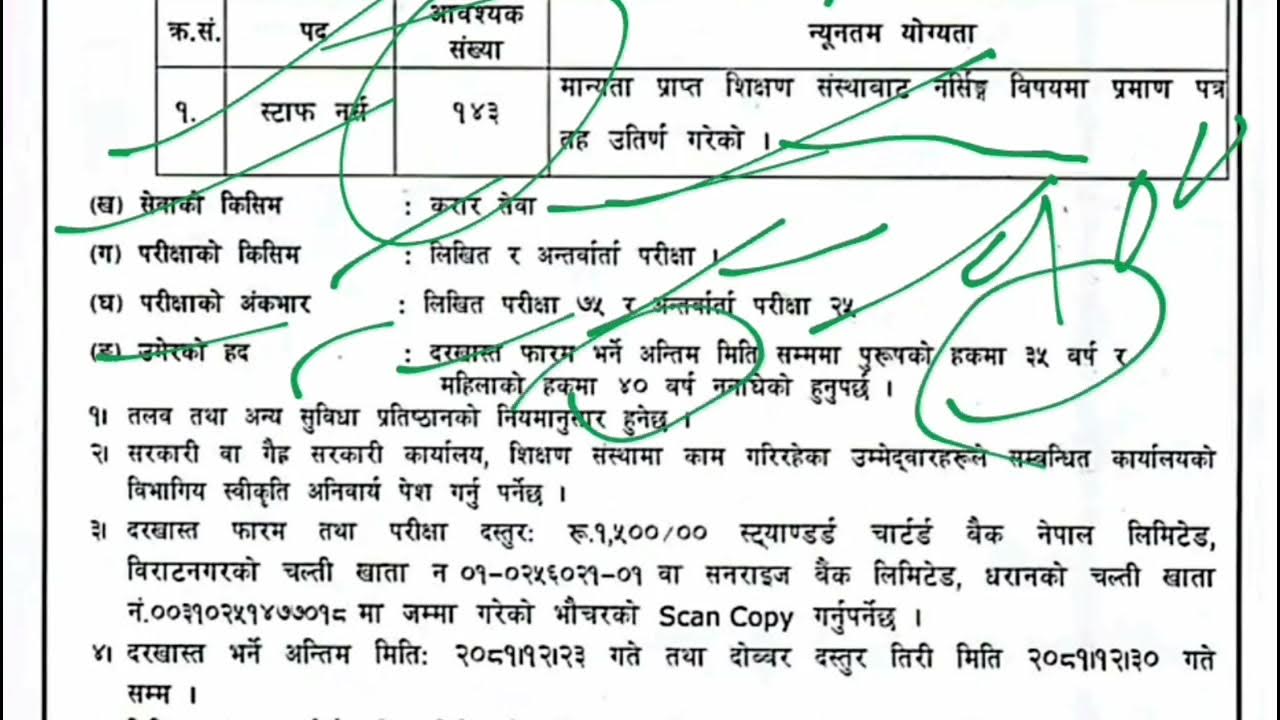 क्र.सं. पद आवश्यक संख्या न्यूनतम योग्यता
१. स्टाफ नर्स १४३ मान्यता प्राप्त शिक्षण संस्थाबाट नर्सिङ्ग विषयमा प्रमाण पत्र
तह उतिर्ण गरेको ।
(ख) सेवाको किसिम : करार सेवा
(ग) परीक्षाको किसिम : लिखित र अन्तर्वार्ता परीक्षा ।
(घ) परीक्षाको अंकभार : लिखित परीक्षा ७५ र अन्तर्वार्ता परीक्षा २५
(ङ) उमेरको हद : दरखास्त फारम भर्ने अन्तिम मिति सम्ममा पुरूषको हकमा ३५ वर्ष र
महिलाको हकमा ४० वर्ष ननाघेको हुनुपर्छ ।
१। तलव तथा अन्य सुविधा प्रतिष्ठानको नियमानुसार हुनेछ ।
२। सरकारी वा गैह्र सरकारी कार्यालय, शिक्षण संस्थामा काम गरिरहेका उम्मेद्वारहरूले सम्बन्धित कार्यालयको
विभागिय स्वीकृति अनिवार्य पेश गर्नु पर्नेछ ।
३। दरखास्त फारम तथा परीक्षा दस्तुरः रू.१,५००/०० स्ट्याण्डर्ड चार्टर्ड बैक नेपाल लिमिटेड,
विराटनगरको चल्ती खाता न ०१-०२५६०२१-०१ वा सनराइज बैंक लिमिटेड, धरानको चल्ती खाता
नं.००३१०२५१४७७०१८ मा जम्मा गरेको भौचरको Scan Copy गर्नुपर्नेछ ।
४। दरखास्त भर्ने अन्तिम मितिः २०८१।१२।२३ गते तथा दोब्बर दस्तुर तिरी मिति २०८१।१२।३० गते
सम्म ।